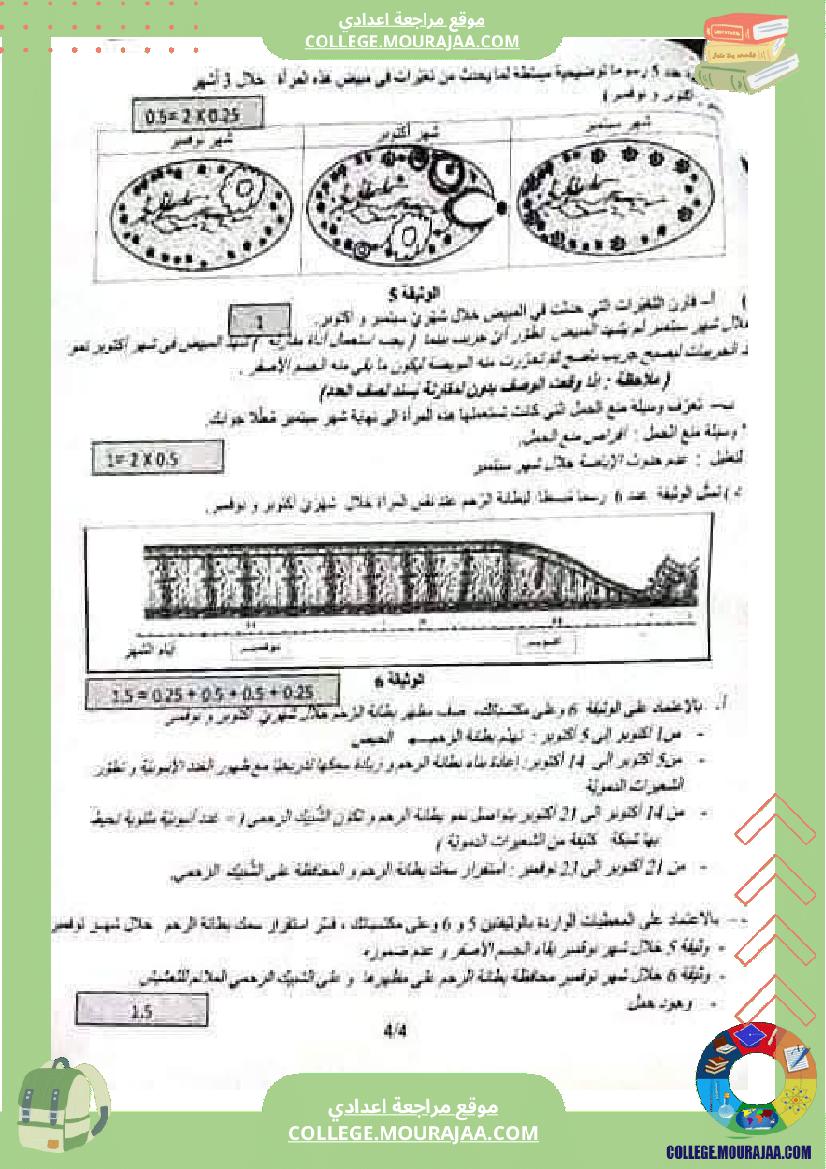 موقع مراجعة اعدادي
COLLEGE.MOURAJAA.COM
5 رسوما توضيحية مبسطة لما يحدث من تغيرات في مبيض هذه المرأة خلال 3 أشهر
أكتوبر و نوفمبر )
0.5= 2 X 0.25
شهر سبتمبر
شهر أكتوبر
شهر نوفمبر
الوثيقة 5
أ– قارن التغيرات التي حدثت في المبيض خلال شهري سبتمبر و أكتوبر.
1
خلال شهر سبتمبر لم يشهد المبيض تطور أي جريب بينما ( يجب استعمال أداة مقارنة ) شهد المبيض في شهر أكتوبر نمو
الجريبات ليصبح جريب ناضج ثم تحررت منه البويضة ليكون ما بقي منه الجسم الأصفر .
( ملاحظة : إذا وقعت الوصف بدون المقارنة يسند نصف العدد)
ب– تعرف وسيلة منع الحمل التي كانت تستعملها هذه المرأة الى نهاية شهر سبتمبر معللا جوابك.
وسيلة منع الحمل : أقراص منع الحمل.
1= 2 X 0.5
التعليل : عدم حدوث الإباضة خلال شهر سبتمبر
تمثل الوثيقة عدد 6 رسما مبسطا لبطانة الرحم عند نفس المرأة خلال شهري أكتوبر و نوفمبر.
أكتوبر
نوفمبر
أيام الشهر
الوثيقة 6
1.5 = 0.25 + 0.5 + 0.5 + 0.25
أ. بالاعتماد على الوثيقة 6 وعلى مكتسباتك، صف مظهر بطانة الرحم خلال شهري أكتوبر و نوفمبر
- من1 أكتوبر إلى 5 أكتوبر : تهدم بطانة الرحم الحيض
- من5 أكتوبر الى 14 أكتوبر: إعادة بناء بطانة الرحم و زيادة سمكها تدريجيا مع ظهور الغدد الأنبوبية و تطور
الشعيرات الدموية
- من 14 أكتوبر الى 21 أكتوبر يتواصل نمو بطانة الرحم و تكون الشبيك الرحمي ( = غدد أنبوبية ملتوية تحيط
بها شبكة كثيفة من الشعيرات الدموية )
- من 21 أكتوبر إلى 23 نوفمبر : استقرار سمك بطانة الرحم و المحافظة على الشبيك الرحمي.
بالاعتماد على المعطيات الواردة بالوثيقتين 5 و 6 وعلى مكتسباتك ، فسر استقرار سمك بطانة الرحم خلال شهر نوفمبر
- وثيقة 5 خلال شهر نوفمبر بقاء الجسم الأصفر و عدم ضموره
- وثيقة 6 خلال شهر نوفمبر محافظة بطانة الرحم على مظهرها و على الشبيك الرحمي الملائم للتعشيش
- وجود حمل
1.5
4/4
موقع مراجعة اعدادي
COLLEGE.MOURAJAA.COM
COLLEGE.MOURAJAA.COM